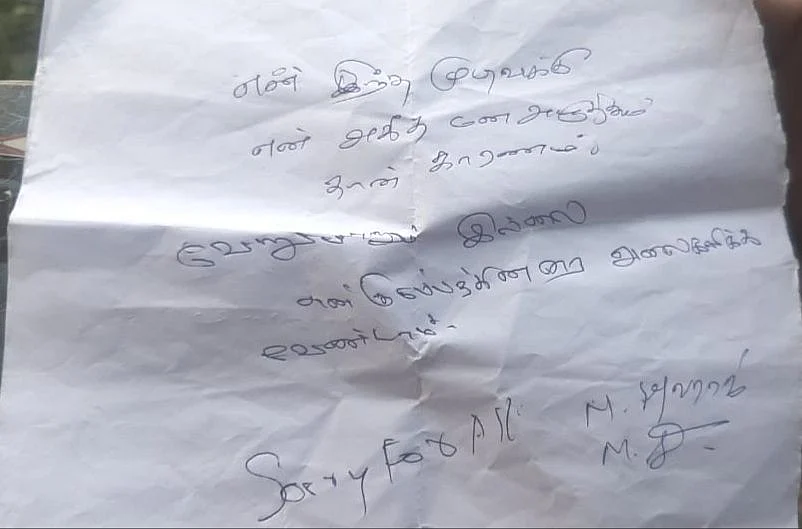 என் இந்த முடிவுக்கு
என் அதிக மன அழுத்தம்
தான் காரணம்.
வேறு யாரும் இல்லை
என் குடும்பத்தினரை அலைகழிக்க
வேண்டாம்.
Sorry For All. M.
M.